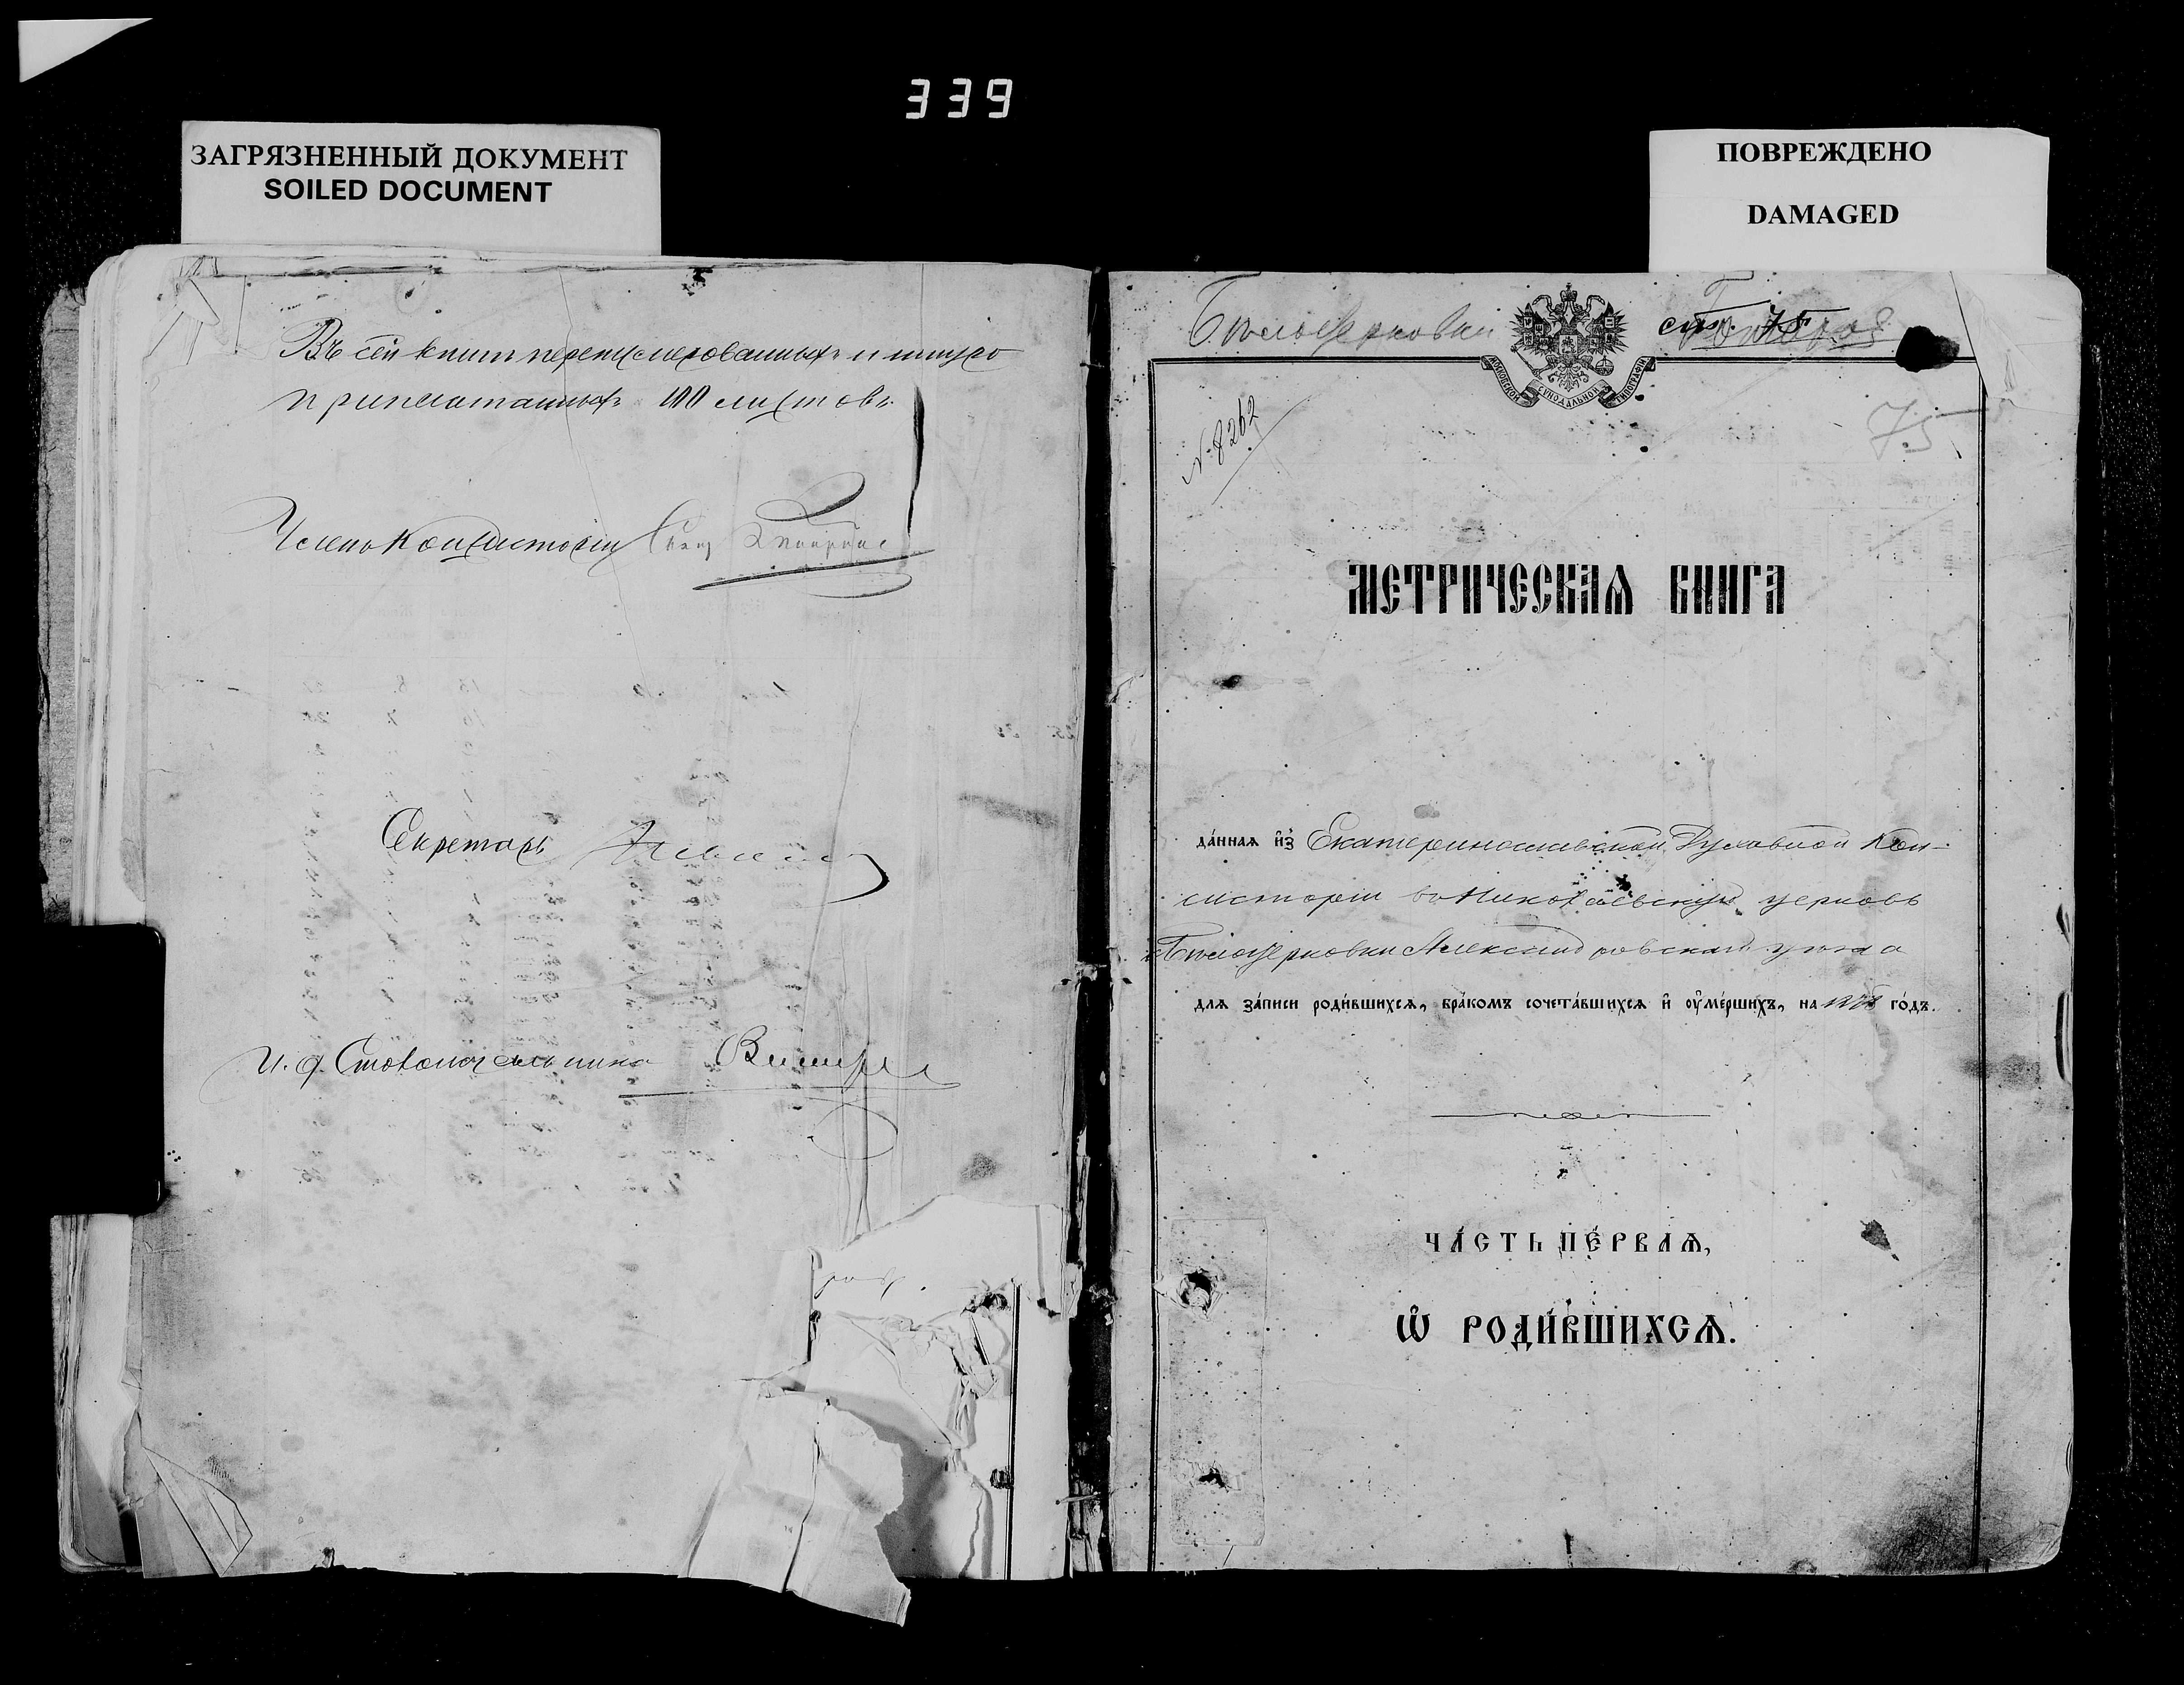 339
ЗАГРЯЗНЕННЫЙ ДОКУМЕНТ
SOILED DOCUMENT
ПОВРЕЖДЕНО
DAMAGED
Въ сей книгѣ перенумерованныхъ и шнуро
припечатанныхъ 100 листовъ.
Членъ Консисторіи
Секретарь
И. д. Столоначальника
Бѣлоцерковки
МОСКОВСКОЙ СѴНОДАЛЬНОЙ ТИПОГРАФІИ
№ 8262
75
МЕТРИЧЕСКАѦ КНИГА
да́ннаѧ и҆з̾ Екатеринославской Духовной Кон-
систоріи въ Николаевскую церковь
Бѣлоцерковки Александровскаго уѣзда
длѧ за́писи роди́вшихсѧ, бра́комъ сочета́вшихсѧ и҆ ᲂу҆ме́ршихъ, на 1878 го́дъ.
ЧА́СТЬ ПЕ́РВАѦ,
Ѽ РОДИ́ВШИХСѦ.